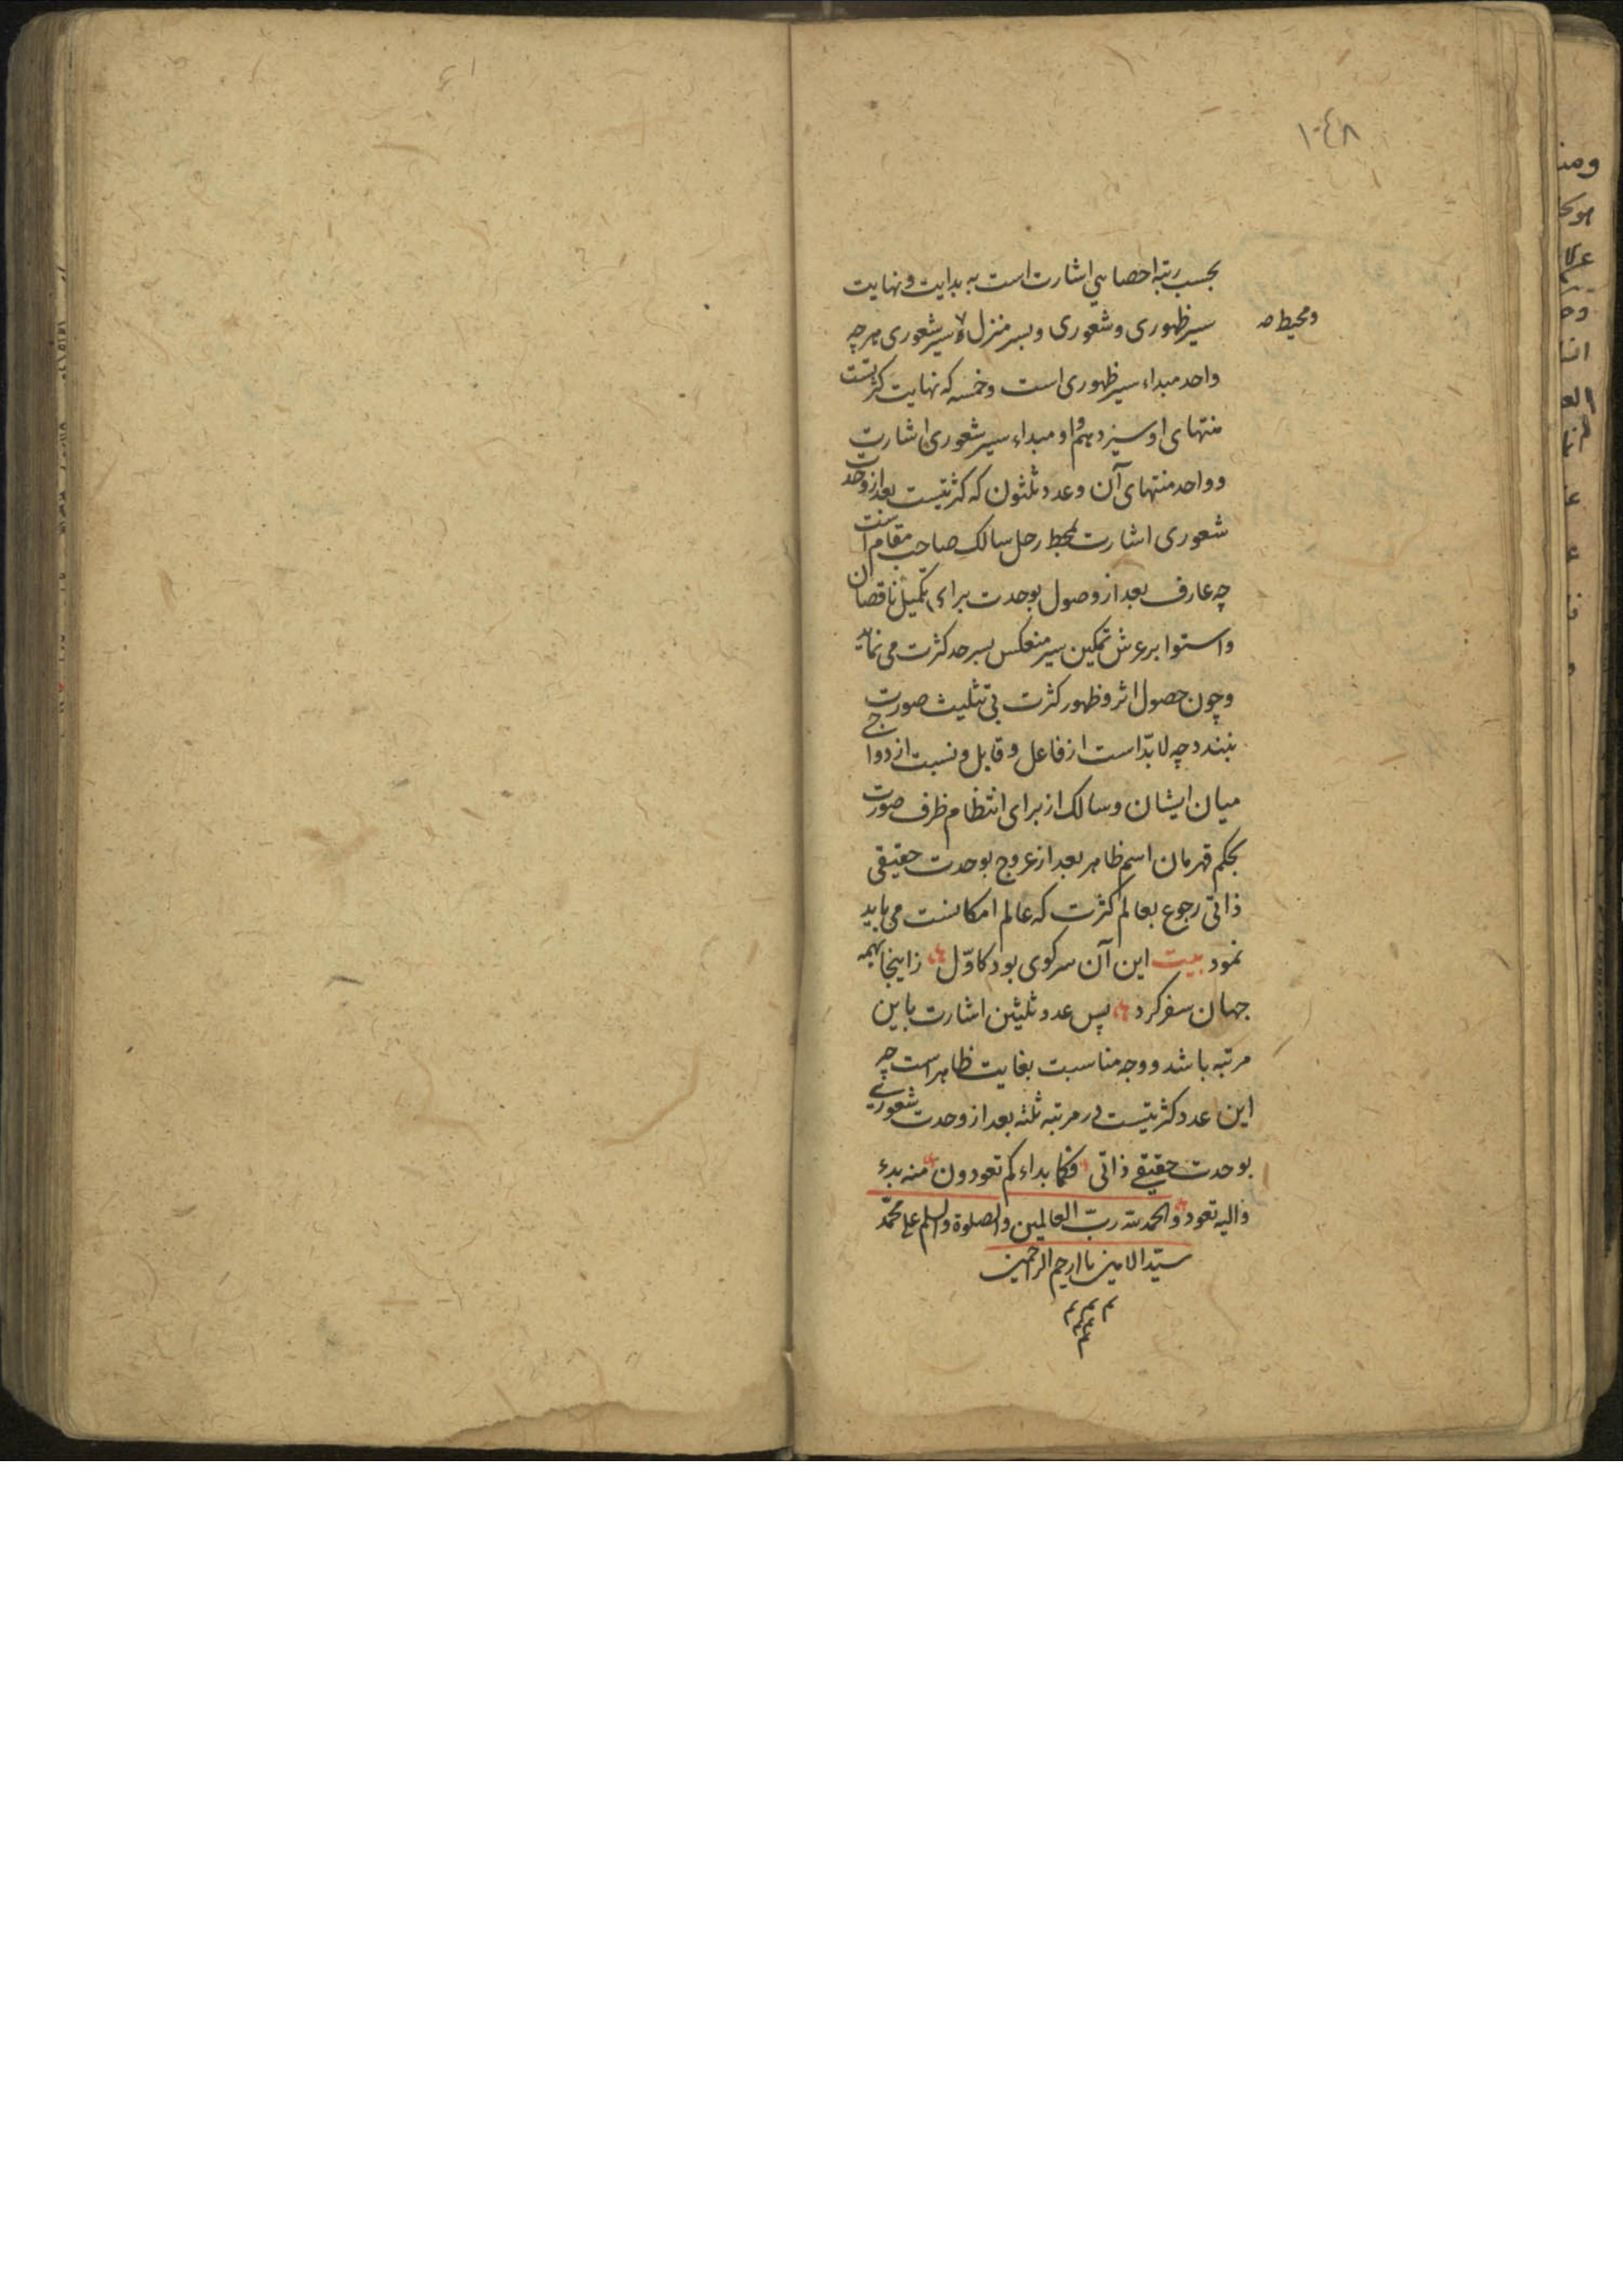 ١٠٤٨
بحسب رتبه احصایی اشارت است به بدایت و نهایت
سیر ظهوری و شعوری و بسر منزل سیر شعوری هرچه
ومحیط صه
واحد مبداء سیر ظهوری است و خمسه که نهایت کثرتست
منتهای او سیزدهم و او مبداء سیر شعوری اشارت
و واحد منتهای آن و عدد ثلثون که کثرتیست بعد از وحدت
شعوری اشارت بمحط رحل سالک صاحب مقام است
چه عارف بعد از وصول بوحدت براء تکمیل ناقصان
و استوا بر عرش تمکین سیر منعکس بسرحد کثرت می نماید
و چون حصول اثر و ظهور کثرت بی تثلیث صورت
نبندد چه لابدّ است از فاعل و قابل و نسبت ازدواجی
میان ایشان و سالک از برای انتظام ظرف صورت
بحکم قهرمان اسم ظاهر بعد از عروج بوحدت حقیقی
ذاتی رجوع بعالم کثرت که عالم امکانست می باید
نمود بیت این آن سر کوی بود کاوّل زاینجا بهمه
جهان سفر کرد پس عدد ثلثین اشارت باین
مرتبه باشد و وجه مناسبت بغایت ظاهر است چه
این عدد کثرتیست در مرتبه ثلثه بعد از وحدت شعوری
بوحدت حقیقے ذاتی فکما بداءکم تعودون منه بدء
والیه تعود والحمد لله ربّ العالمین والصلوة والسلم علی محمّد
سیّد الامین یا ارحم الراحمین
م م م
م م
م